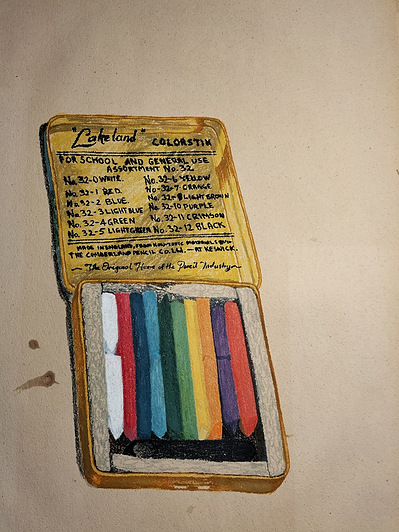 "Lakeland" COLORSTIK
FOR SCHOOL AND GENERAL USE
ASSORTMENT No. 32
No. 32-0 WHITE. No. 32-6 YELLOW
No. 32-1 RED. No-32-7 ORANGE
No. 32-2 BLUE. No. 32-8 LIGHT BROWN
No. 32-3 LIGHT BLUE No. 32-10 PURPLE
No. 32-4 GREEN No. 32-11 CRIMSON
No. 32-5 LIGHT GREEN No. 32-12 BLACK
MADE IN ENGLAND, FROM MATERIALS BY
THE CUMBERLAND PENCIL CO. Ltd.,-AT KESWICK.
The Original Home of the Pencil Industry